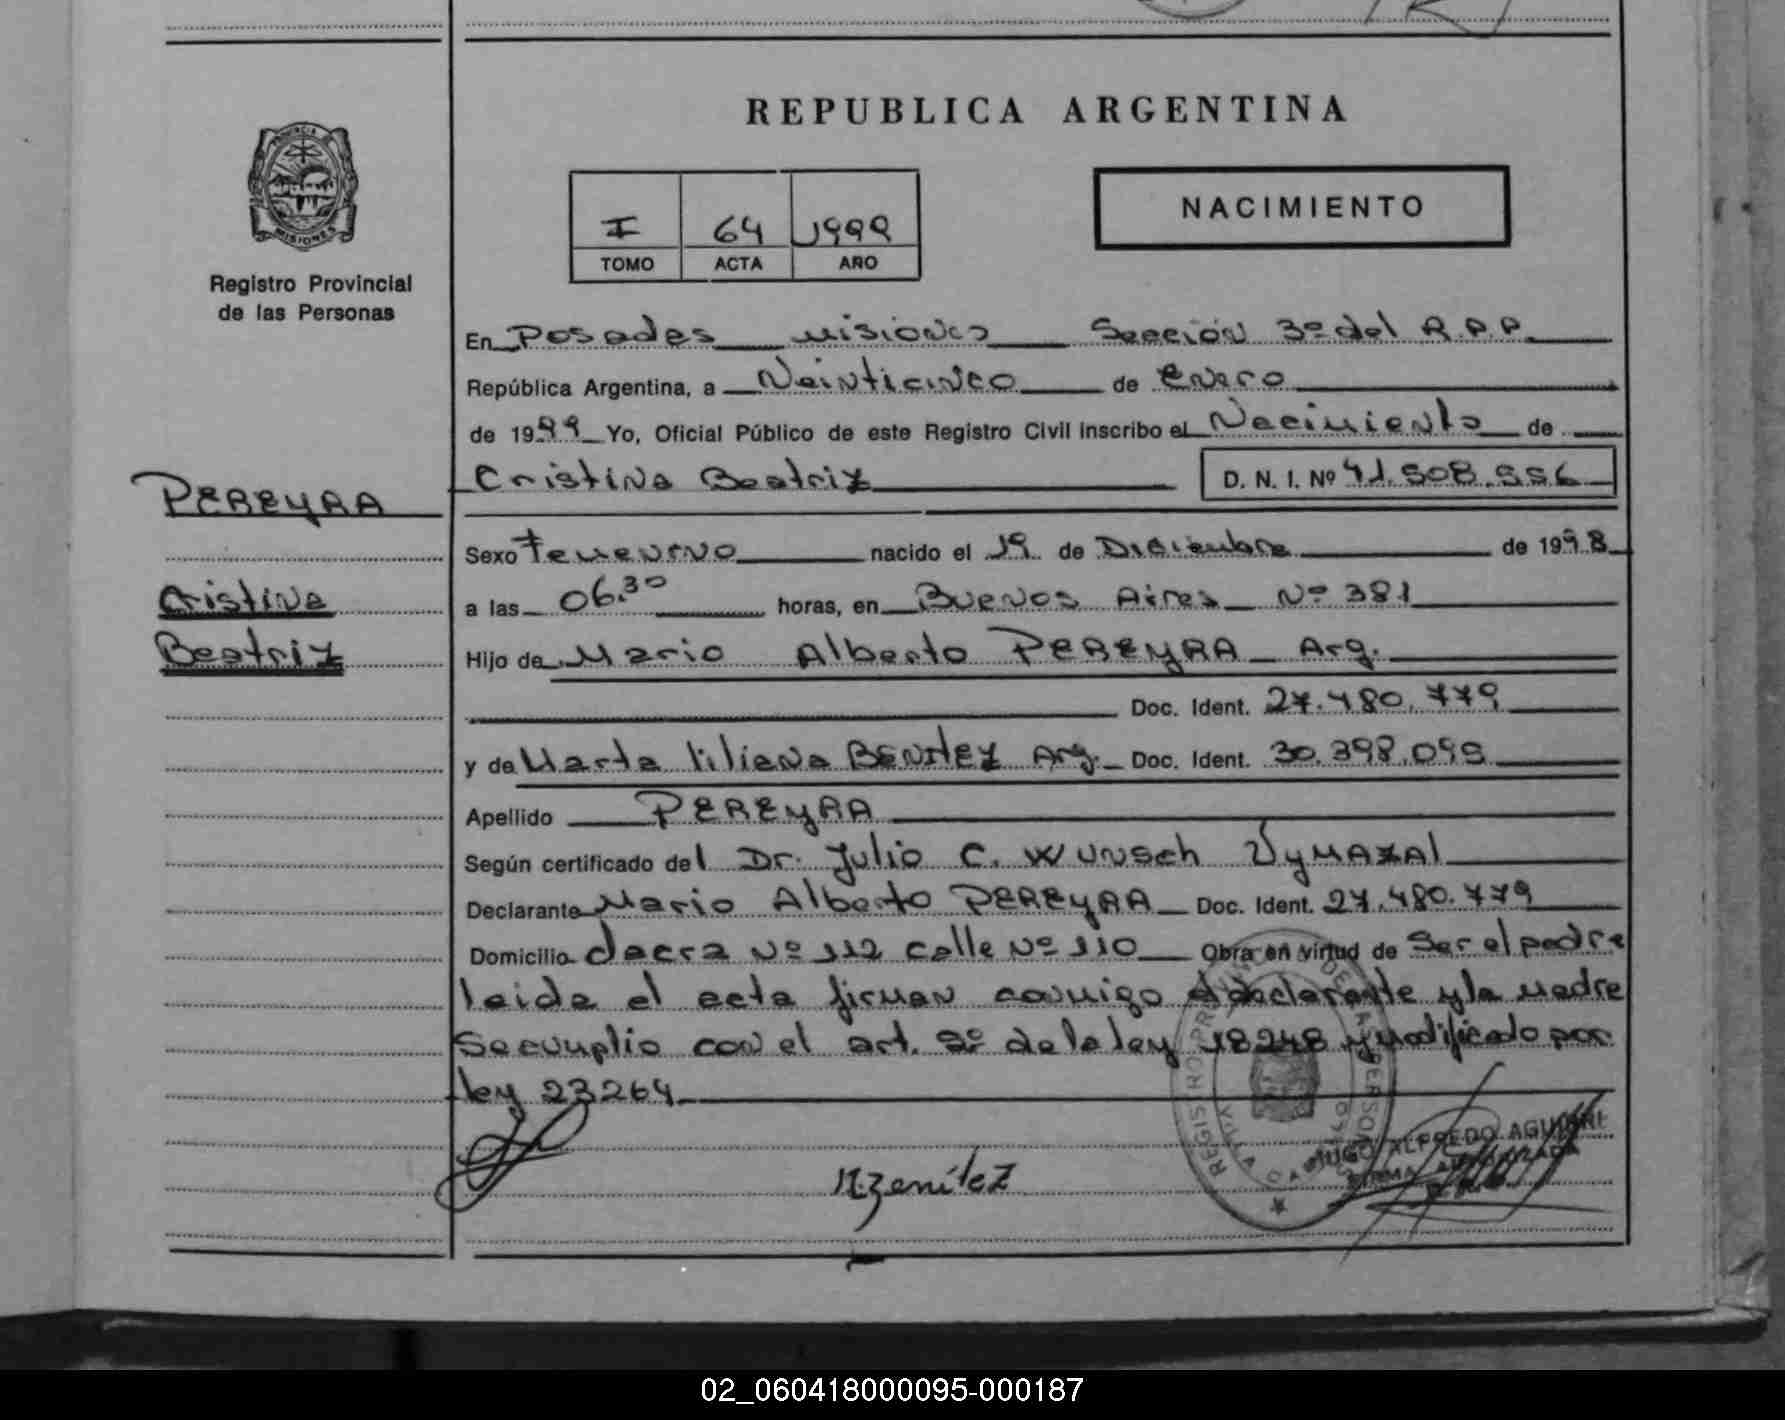 REPUBLICA ARGENTINA
PROVINCIA DE MISIONES
Registro Provincial
de las Personas
I 64 1999
TOMO ACTA AÑO
NACIMIENTO
En Posadas misiones Sección 3º del R.P.P.
República Argentina, a Veinticinco de Enero
de 1999 Yo, Oficial Público de este Registro Civil inscribo el Nacimiento de
Cristina Beatriz D. N. I. Nº 41.508.556
PEREYRA
Cristina
Beatriz
Sexo Femenino nacido el 19 de Diciembre de 1998
a las 06.30 horas, en Buenos Aires Nº 381
Hijo de Mario Alberto PEREYRA Arg.
Doc. Ident. 27.480.779
y de Marta liliana BENITEZ Arg. Doc. Ident. 30.398.095
Apellido PEREYRA
Según certificado del Dr. Julio C. Wunsch VyMAZAl
Declarante Mario Alberto PEREYRA Doc. Ident. 27.480.779
Domicilio chacra Nº 112 calle Nº 110 Obra en virtud de Ser el padre
leida el acta firman conmigo el declarante y la madre
Se cumplio con el art. 2º de la ley 18248 y modificado por
ley 23264
M. Benítez
HUGO ALFREDO AGUIRRE
FIRMA AUTORIZADA
02_060418000095-000187